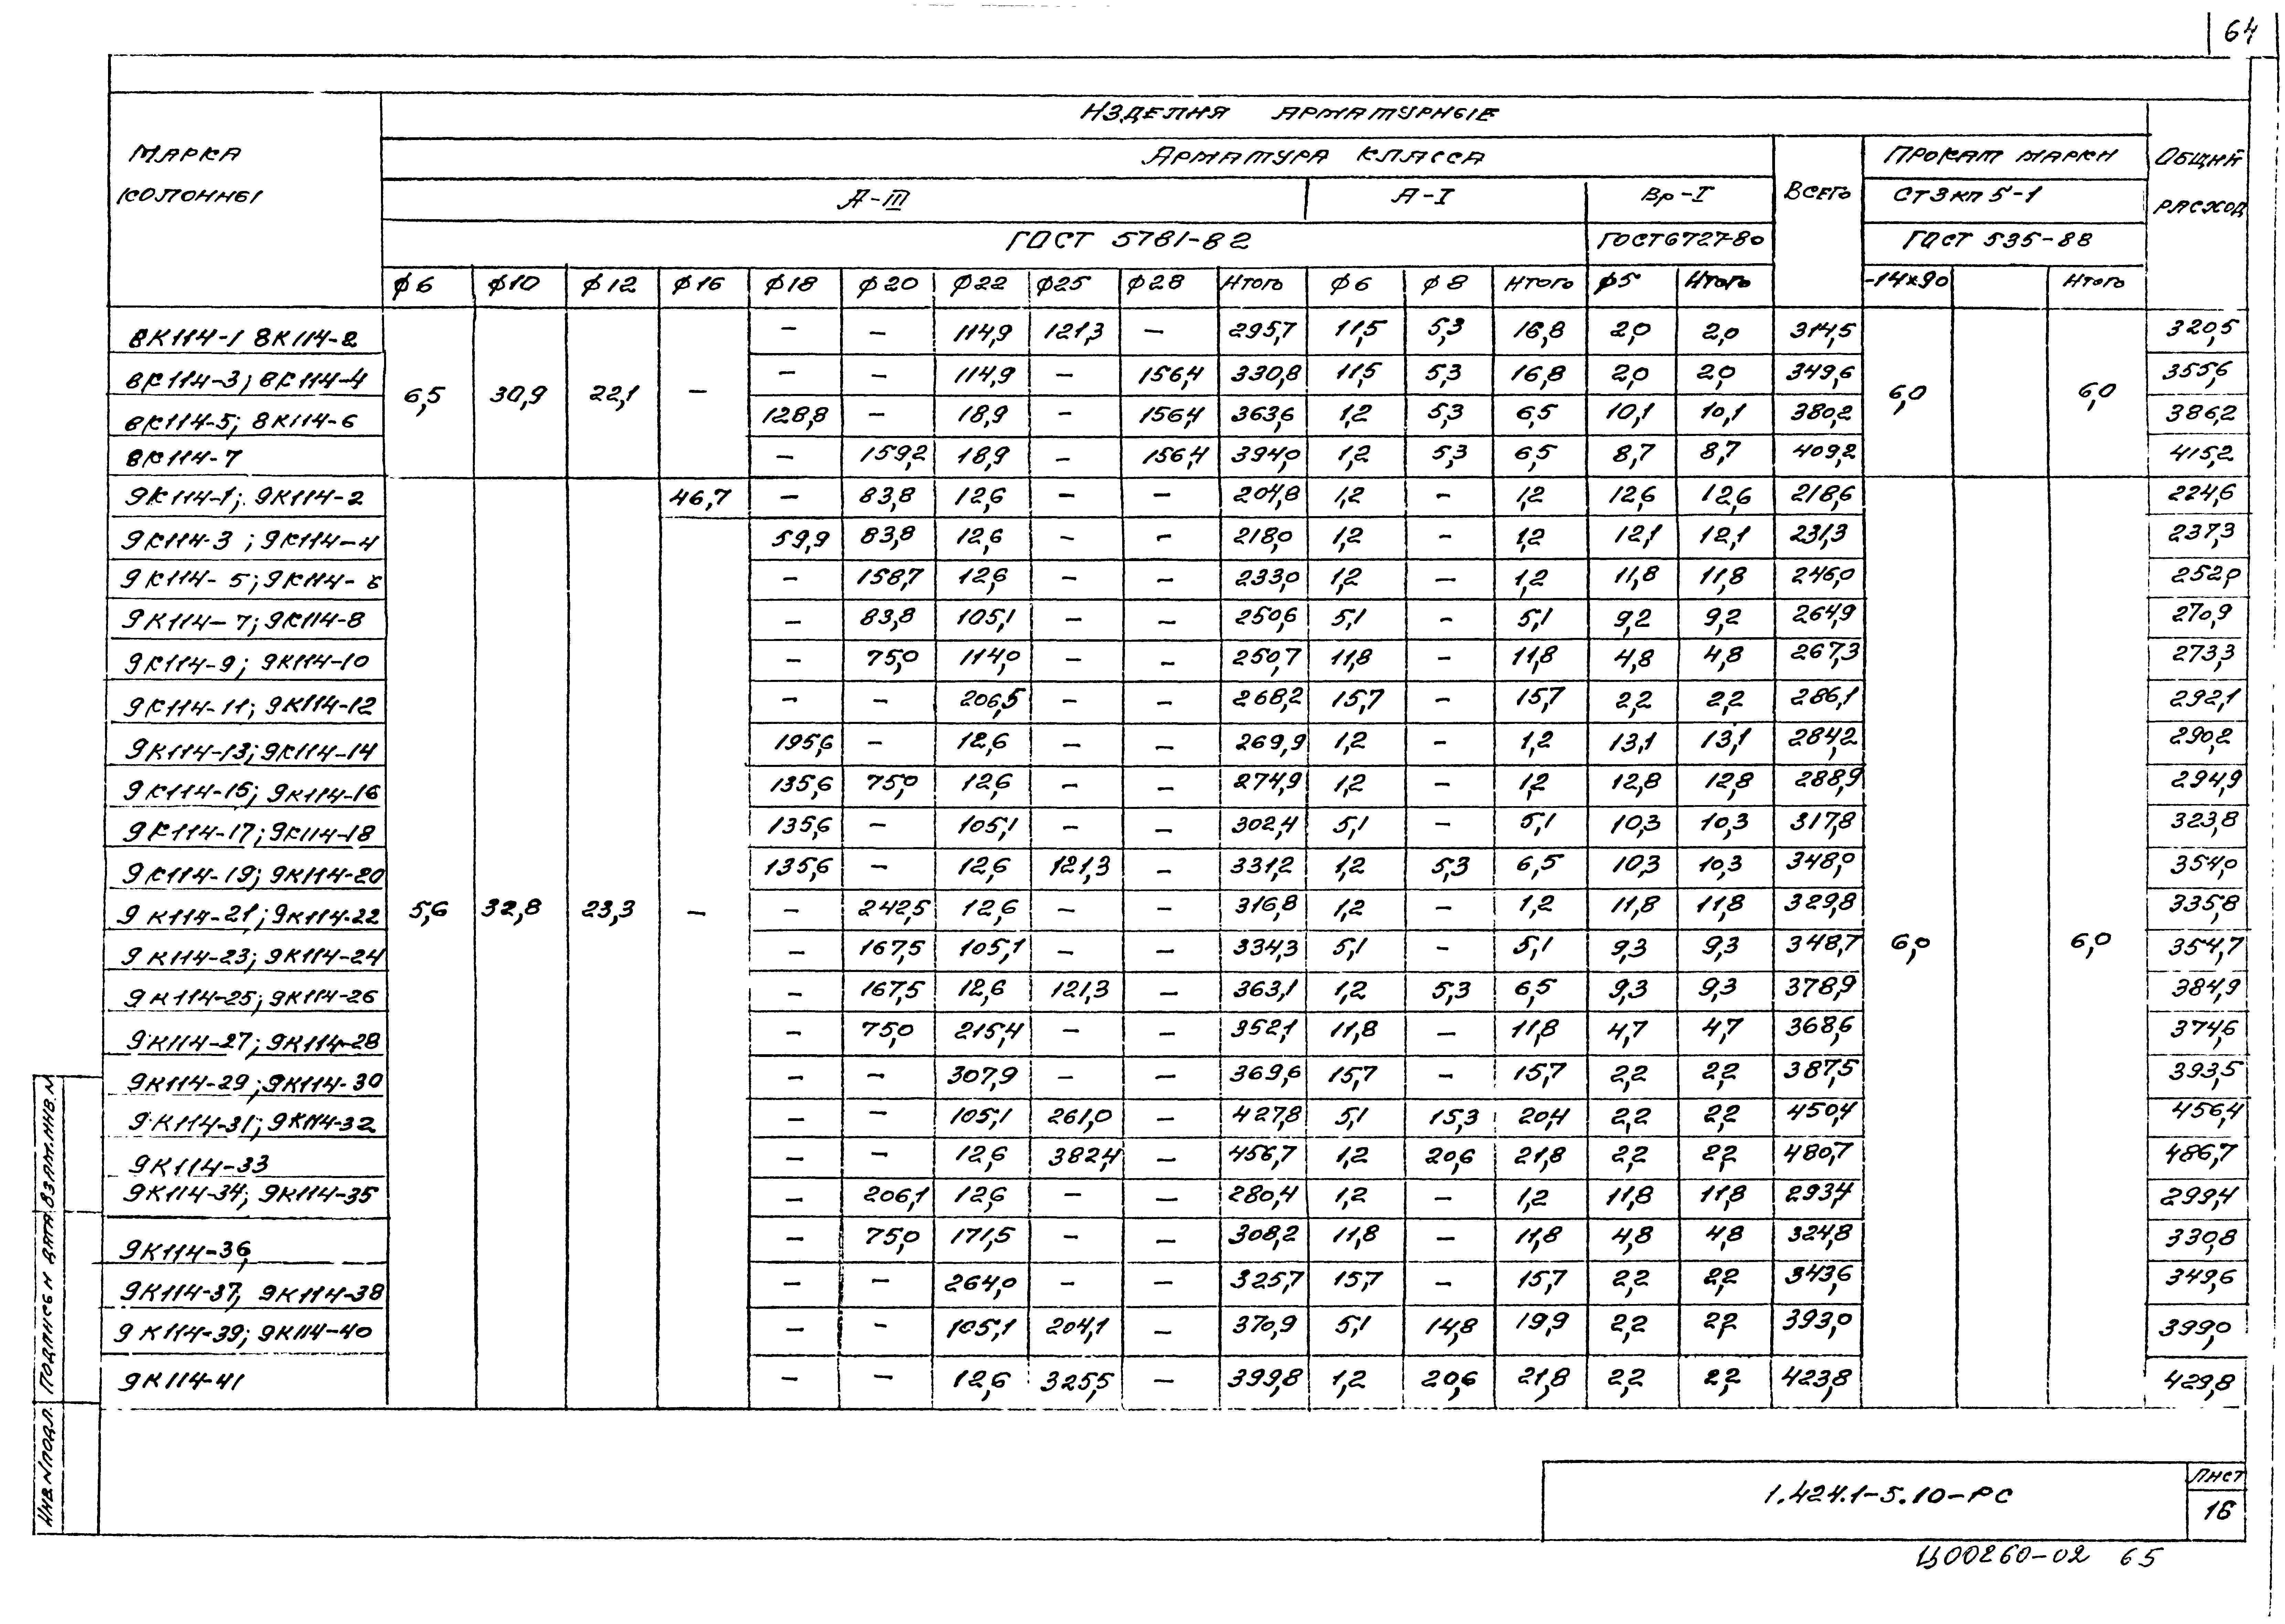 64
ИЗДЕЛИЯ АРМАТУРНЫЕ
МАРКА КОЛОННЫ
АРМАТУРА КЛАССА
ВСЕГО
ПРОКАТ МАРКИ
ОБЩИЙ РАСХОД
А-III А-I Вр-I СТ3кп5-1
ГОСТ 5781-82 ГОСТ 6727-80 ГОСТ 535-88
ф6 ф10 ф12 ф16 ф18 ф20 ф22 ф25 ф28 Итого ф6 ф8 Итого ф5 Итого -14х90 Итого
8К114-1 8К114-2 — — 114,9 121,3 — 295,7 11,5 5,3 16,8 2,0 2,0 314,5 320,5
8К114-3; 8К114-4 — — 114,9 — 156,4 330,8 11,5 5,3 16,8 2,0 2,0 349,6 355,6
6,5 30,9 22,1 — 6,0 6,0
8К114-5; 8К114-6 128,8 — 18,9 — 156,4 363,6 1,2 5,3 6,5 10,1 10,1 380,2 386,2
8К114-7 — 159,2 18,9 — 156,4 394,0 1,2 5,3 6,5 8,7 8,7 409,2 415,2
9К114-1; 9К114-2 46,7 — 83,8 12,6 — — 204,8 1,2 — 1,2 12,6 12,6 218,6 224,6
9К114-3; 9К114-4 59,9 83,8 12,6 — — 218,0 1,2 — 1,2 12,1 12,1 231,3 237,3
9К114-5; 9К114-6 — 158,7 12,6 — — 233,0 1,2 — 1,2 11,8 11,8 246,0 252,0
9К114-7; 9К114-8 — 83,8 105,1 — — 250,6 5,1 — 5,1 9,2 9,2 264,9 270,9
9К114-9; 9К114-10 — 75,0 114,0 — — 250,7 11,8 — 11,8 4,8 4,8 267,3 273,3
9К114-11; 9К114-12 — — 206,5 — — 268,2 15,7 — 15,7 2,2 2,2 286,1 292,1
9К114-13; 9К114-14 195,6 — 12,6 — — 269,9 1,2 — 1,2 13,1 13,1 284,2 290,2
9К114-15; 9К114-16 135,6 75,0 12,6 — — 274,9 1,2 — 1,2 12,8 12,8 288,9 294,9
9К114-17; 9К114-18 135,6 — 105,1 — — 302,4 5,1 — 5,1 10,3 10,3 317,8 323,8
9К114-19; 9К114-20 135,6 — 12,6 121,3 — 331,2 1,2 5,3 6,5 10,3 10,3 348,0 354,0
9К114-21; 9К114-22 5,6 32,8 23,3 — — 242,5 12,6 — — 316,8 1,2 — 1,2 11,8 11,8 329,8 335,8
9К114-23; 9К114-24 — 167,5 105,1 — — 334,3 5,1 — 5,1 9,3 9,3 348,7 6,0 6,0 354,7
9К114-25; 9К114-26 — 167,5 12,6 121,3 — 363,1 1,2 5,3 6,5 9,3 9,3 378,9 384,9
9К114-27; 9К114-28 — 75,0 215,4 — — 352,1 11,8 — 11,8 4,7 4,7 368,6 374,6
9К114-29; 9К114-30 — — 307,9 — — 369,6 15,7 — 15,7 2,2 2,2 387,5 393,5
9К114-31; 9К114-32 — — 105,1 261,0 — 427,8 5,1 15,3 20,4 2,2 2,2 450,4 456,4
9К114-33 — — 12,6 382,4 — 456,7 1,2 20,6 21,8 2,2 2,2 480,7 486,7
9К114-34; 9К114-35 — 206,1 12,6 — — 280,4 1,2 — 1,2 11,8 11,8 293,4 299,4
9К114-36, — 75,0 171,5 — — 308,2 11,8 — 11,8 4,8 4,8 324,8 330,8
9К114-37, 9К114-38 — — 264,0 — — 325,7 15,7 — 15,7 2,2 2,2 343,6 349,6
9К114-39; 9К114-40 — — 105,1 204,1 — 370,9 5,1 14,8 19,9 2,2 2,2 393,0 399,0
9К114-41 — — 12,6 325,5 — 399,8 1,2 20,6 21,8 2,2 2,2 423,8 429,8
ИНВ. N ПОДЛ. ПОДПИСЬ И ДАТА ВЗАМ. ИНВ. N
1.424.1-5.10-РС
ЛИСТ
16
Ц00260-02 65